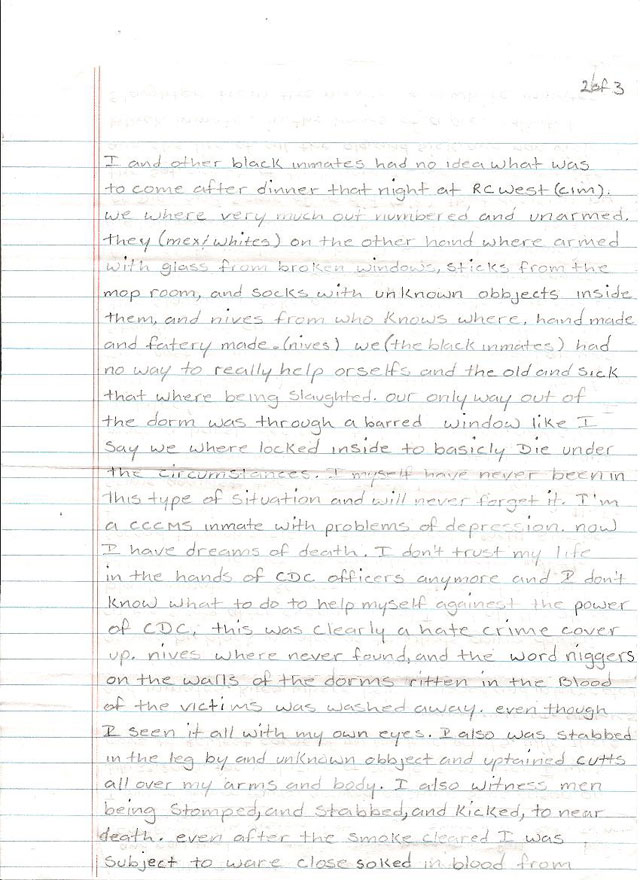 2 of 3
I and other black inmates had no idea what was
to come after dinner that night at RC West (cim).
we where very much out numbered and unarmed.
they (mex/whites) on the other hand where armed
with glass from broken windows, sticks from the
mop room, and socks with unknown obbjects inside
them, and nives from who knows where, hand made
and fatery made. (nives) we (the black inmates) had
no way to really help orselfs and the old and sick
that where being slaughted. our only way out of
the dorm was through a barred window like I
say we where locked inside to basicly Die under
the circumstances. I myself have never been in
this type of situation and will never forget it. I'm
a CCCMS inmate with problems of depression. now
I have dreams of death. I don't trust my life
in the hands of CDC officers anymore and I don't
know what to do to help myself againest the power
of CDC, this was clearly a hate crime cover
up. nives where never found, and the word niggers
on the walls of the dorms ritten in the Blood
of the victims was washed away. even though
I seen it all with my own eyes. I also was stabbed
in the leg by and unknown obbject and uptained cutts
all over my arms and body. I also witness men
being Stomped, and Stabbed, and kicked, to near
death. even after the smoke cleared I was
Subject to ware close soked in blood from